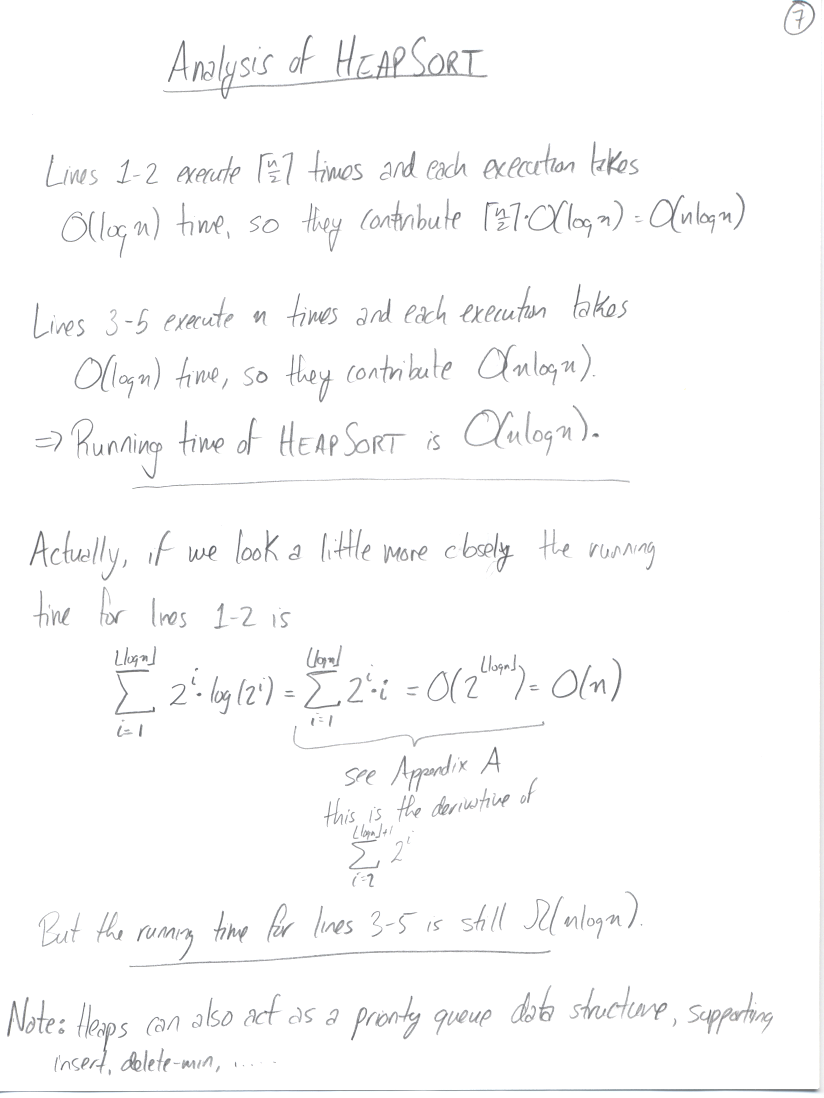 7
Analysis of HEAPSORT
Lines 1-2 execute ⌈n/2⌉ times and each execution takes
O(log n) time, so they contribute ⌈n/2⌉·O(log n) = O(n log n)
Lines 3-5 execute n times and each execution takes
O(log n) time, so they contribute O(n log n).
⇒ Running time of HEAPSORT is O(n log n).
Actually, if we look a little more closely the running
time for lines 1-2 is
∑_{i=1}^{⌊log n⌋} 2^i · log(2^i) = ∑_{i=1}^{⌊log n⌋} 2^i · i = O(2^{⌊log n⌋}) = O(n)
see Appendix A
this is the derivative of
∑_{i=2}^{⌊log n⌋+1} 2^i
But the running time for lines 3-5 is still Ω(n log n).
Note: Heaps can also act as a priority queue data structure, supporting
insert, delete-min, .....